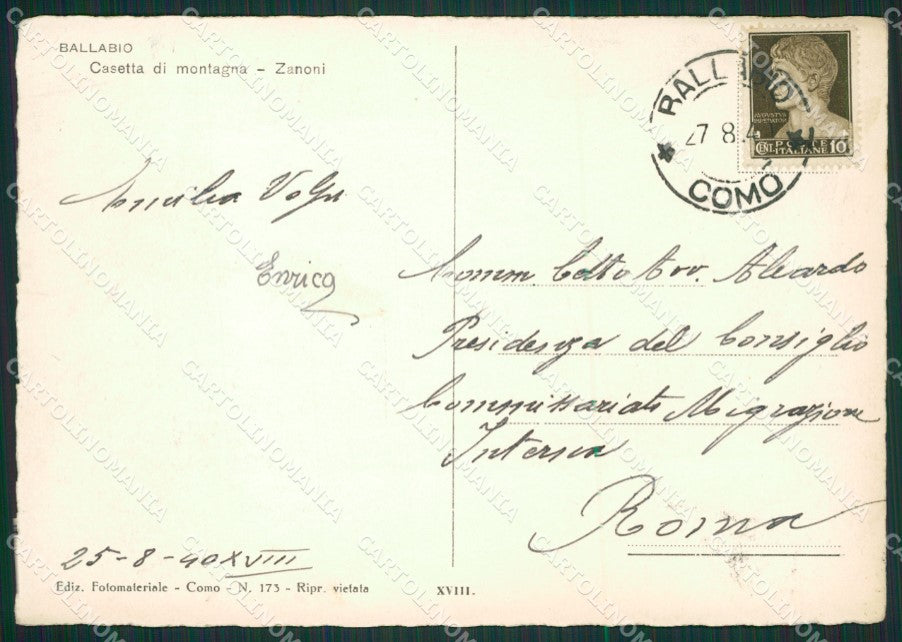 BALLABIO
Casetta di montagna - Zanoni
BALLABIO
27 8 4
COMO
AVGVSTVS
IMPERATOR
CENT. POSTE ITALIANE 10
Volpi
Enrica
Comm. Avv. Aleardo
Presidenza del Consiglio
Commissariato Migrazione
Interna
Roma
25-8-40 XVIII
Ediz. Fotomateriale - Como - N. 173 - Ripr. vietata
XVIII.
CARTOLINOMANIA